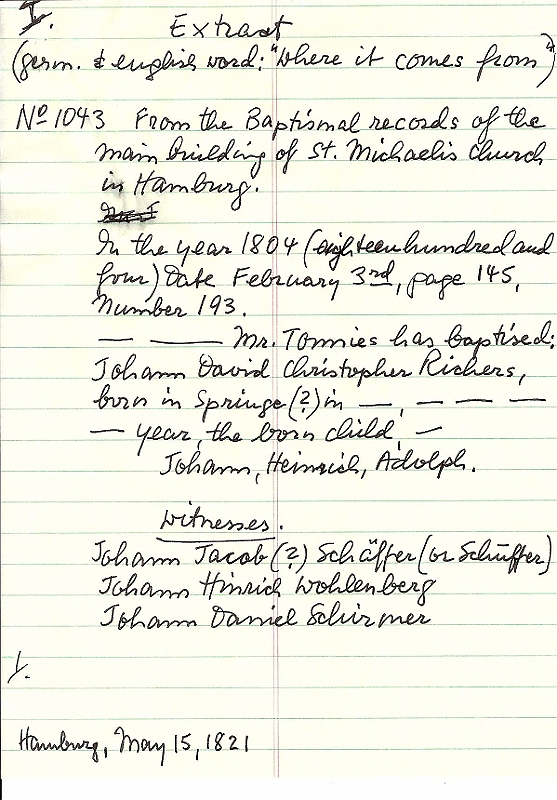 I.
Extract
(germ. & english word: "where it comes from")
Nº 1043 From the Baptismal records of the
main building of St. Michaelis Church
in Hamburg.
In the year 1804 (eighteenhundred and
four) Date February 3rd, page 145,
Number 193.
— — Mr. Tonnies has baptised:
Johann David Christopher Richers,
born in Springe (?) in —, — — —
— year, the born child, —
Johann, Heinrich, Adolph.
Witnesses.
Johann Jacob (?) Schäffer (or Schüffer)
Johann Hinrich Wohlenberg
Johann Daniel Schirmer
Hamburg, May 15, 1821